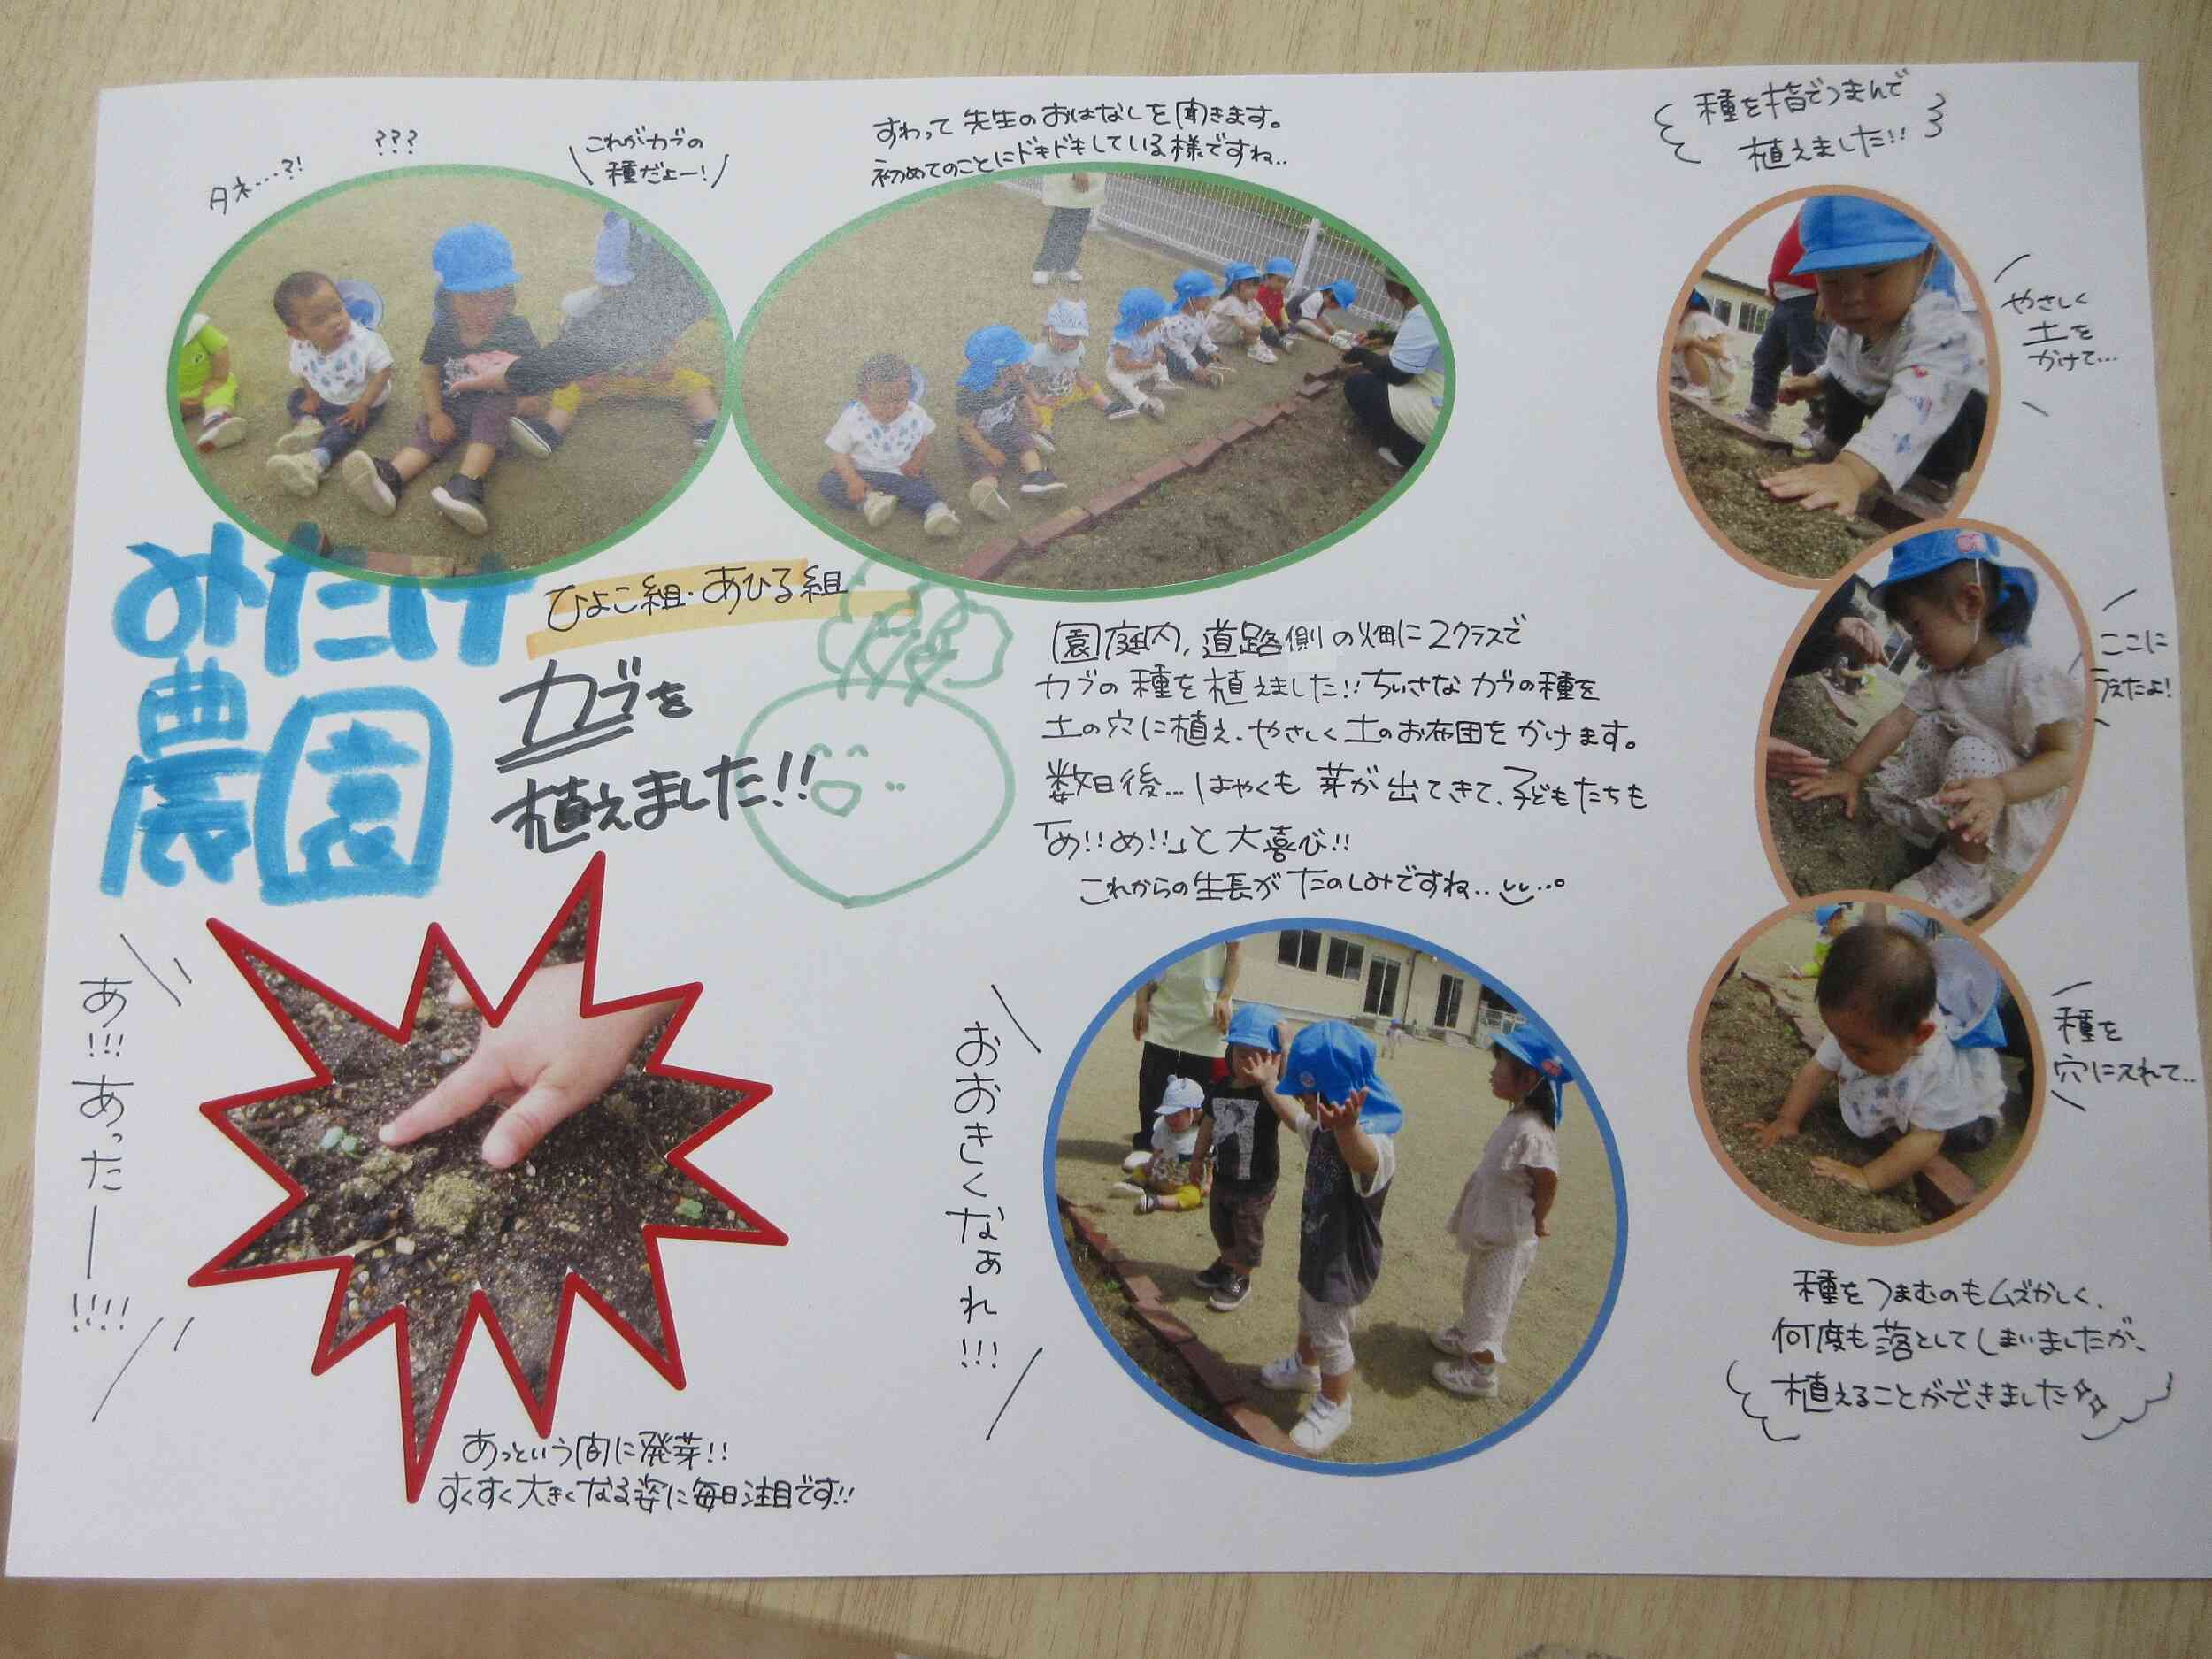 タネ…?!
???
これがカブの
種だよー!
すわって 先生のおはなしを聞きます。
初めてのことにドキドキしている様ですね..
種を指でつまんで
植えました!!
やさしく
土を
かけて…
みたけ
農園
ひよこ組・あひる組
カブを
植えました!!
園庭内、道路側の畑に2クラスで
カブの種を植えました!! ちいさなカブの種を
土の穴に植え、やさしく土のお布団をかけます。
数日後… はやくも芽が出てきて、子どもたちも
「め!!め!!」と大喜び!!
これからの生長がたのしみですね..
ここに
うえたよ!
種を
穴に入れて..
あ!!!あったー!!!!
おおきくなぁれ!!!
あっという間に発芽!!
すくすく大きくなる姿に毎日注目です!!
種をつまむのもムズかしく、
何度も落としてしまいましたが、
植えることができました